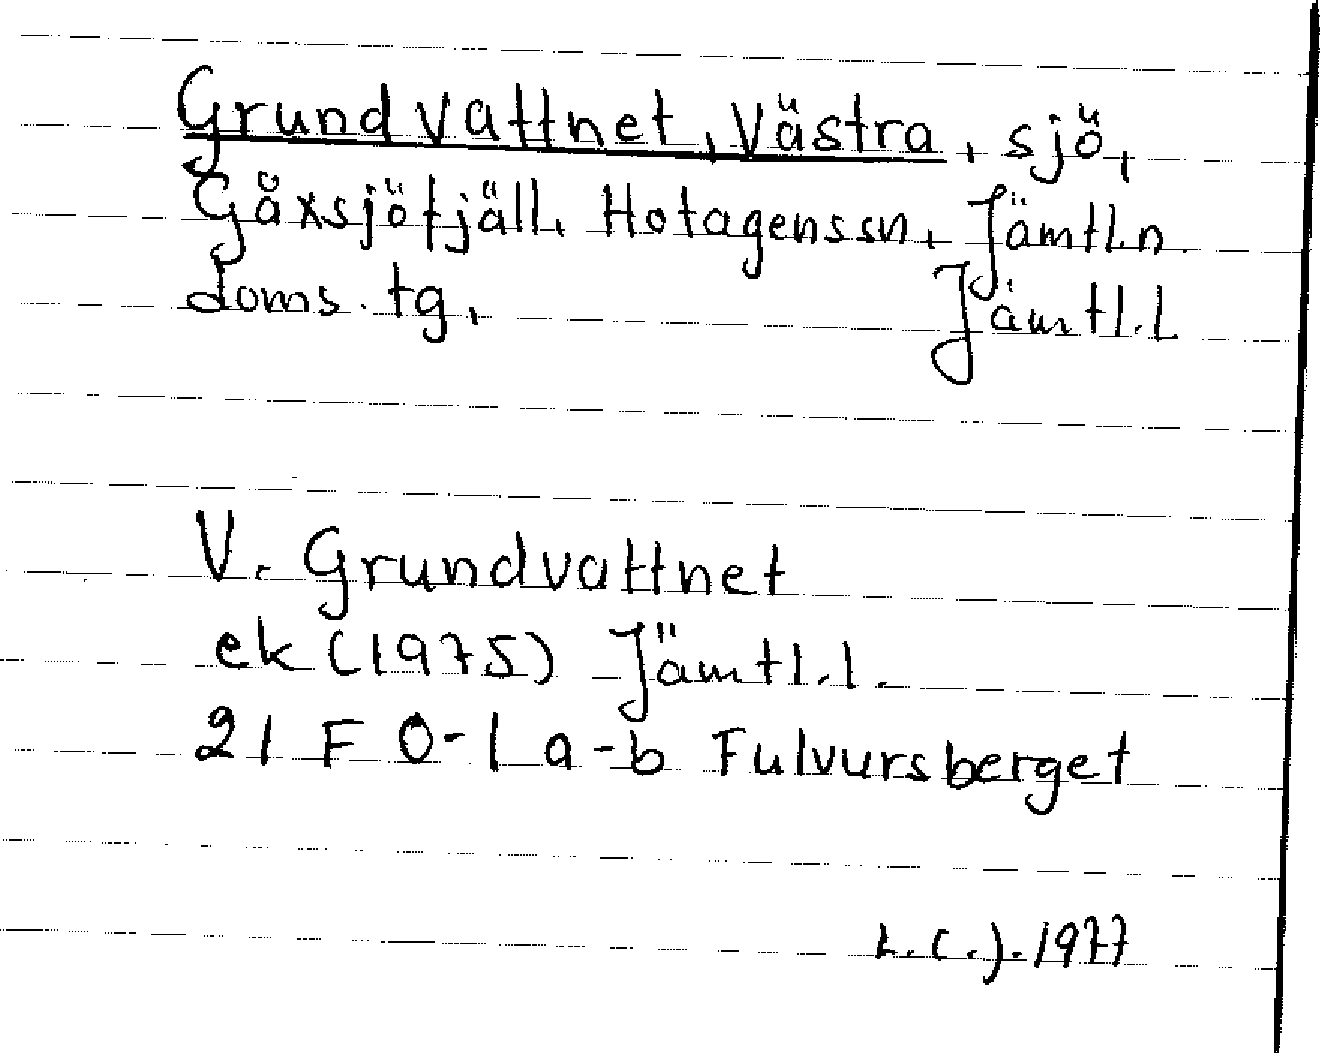 Grundvattnet, Västra, sjö,
Gåxsjöfjäll, Hotagens sn, Jämtl.n.
doms. tg, Jämtl.l
V. Grundvattnet
ek (1975) Jämtl.l.
21 F 0-1 a-b Fulvursberget
L.C.J. 1977